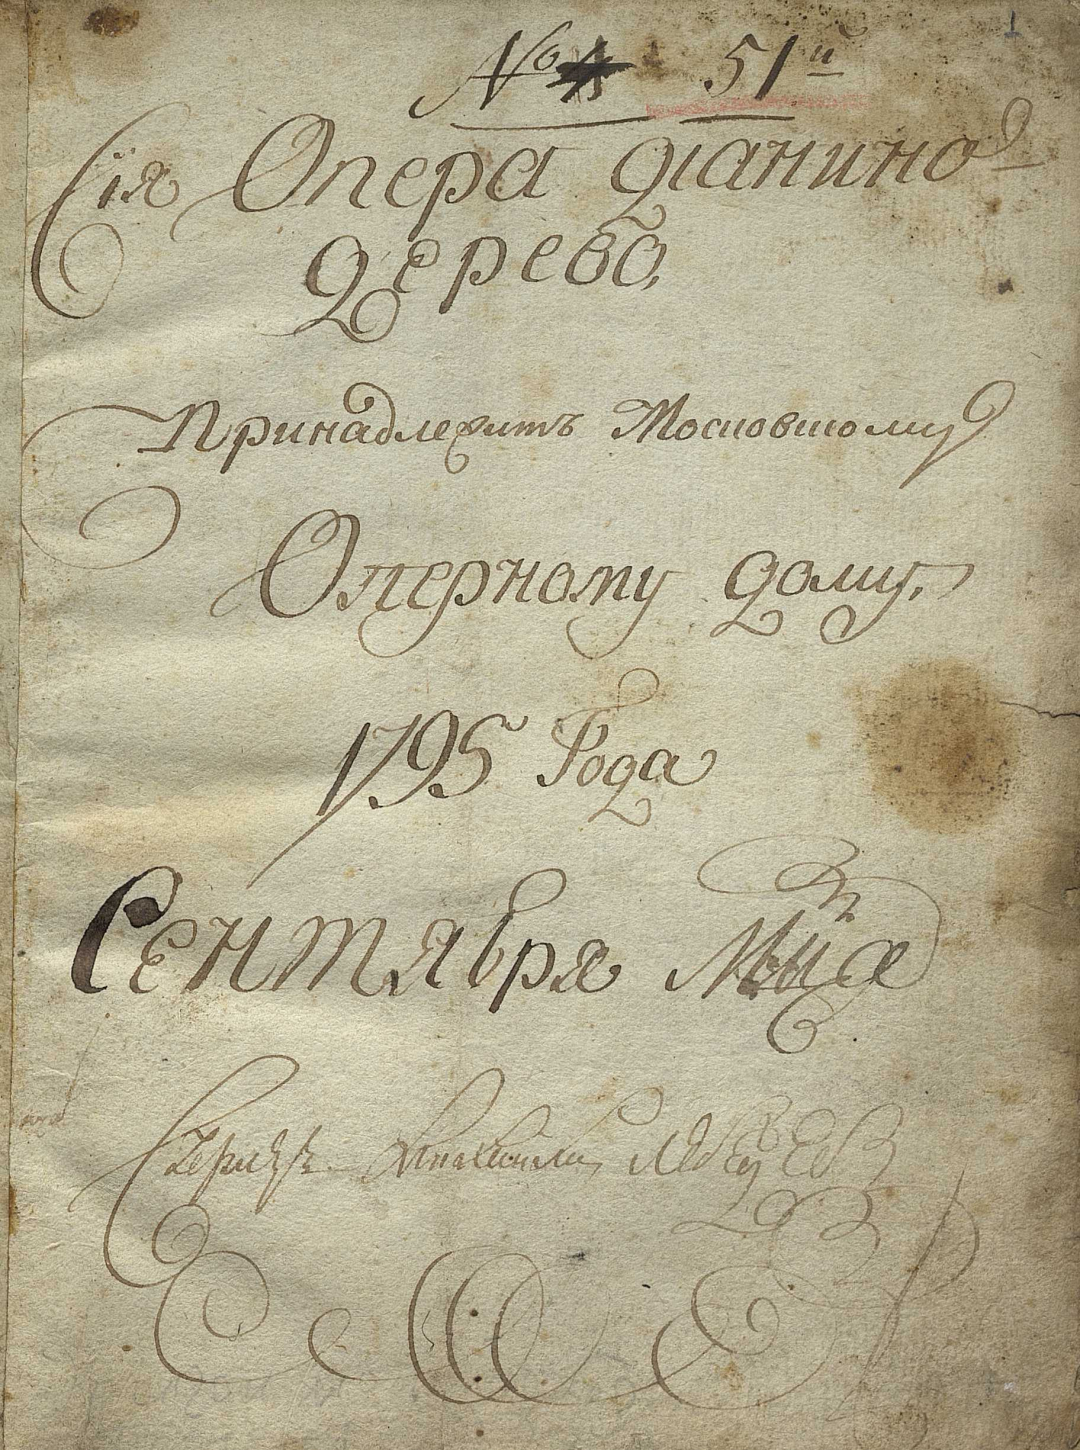 1
№ 51й
Сія Опера діанино
дерево,
Принадлежитъ Московскому
Оперному дому,
1795 Года
Сентября